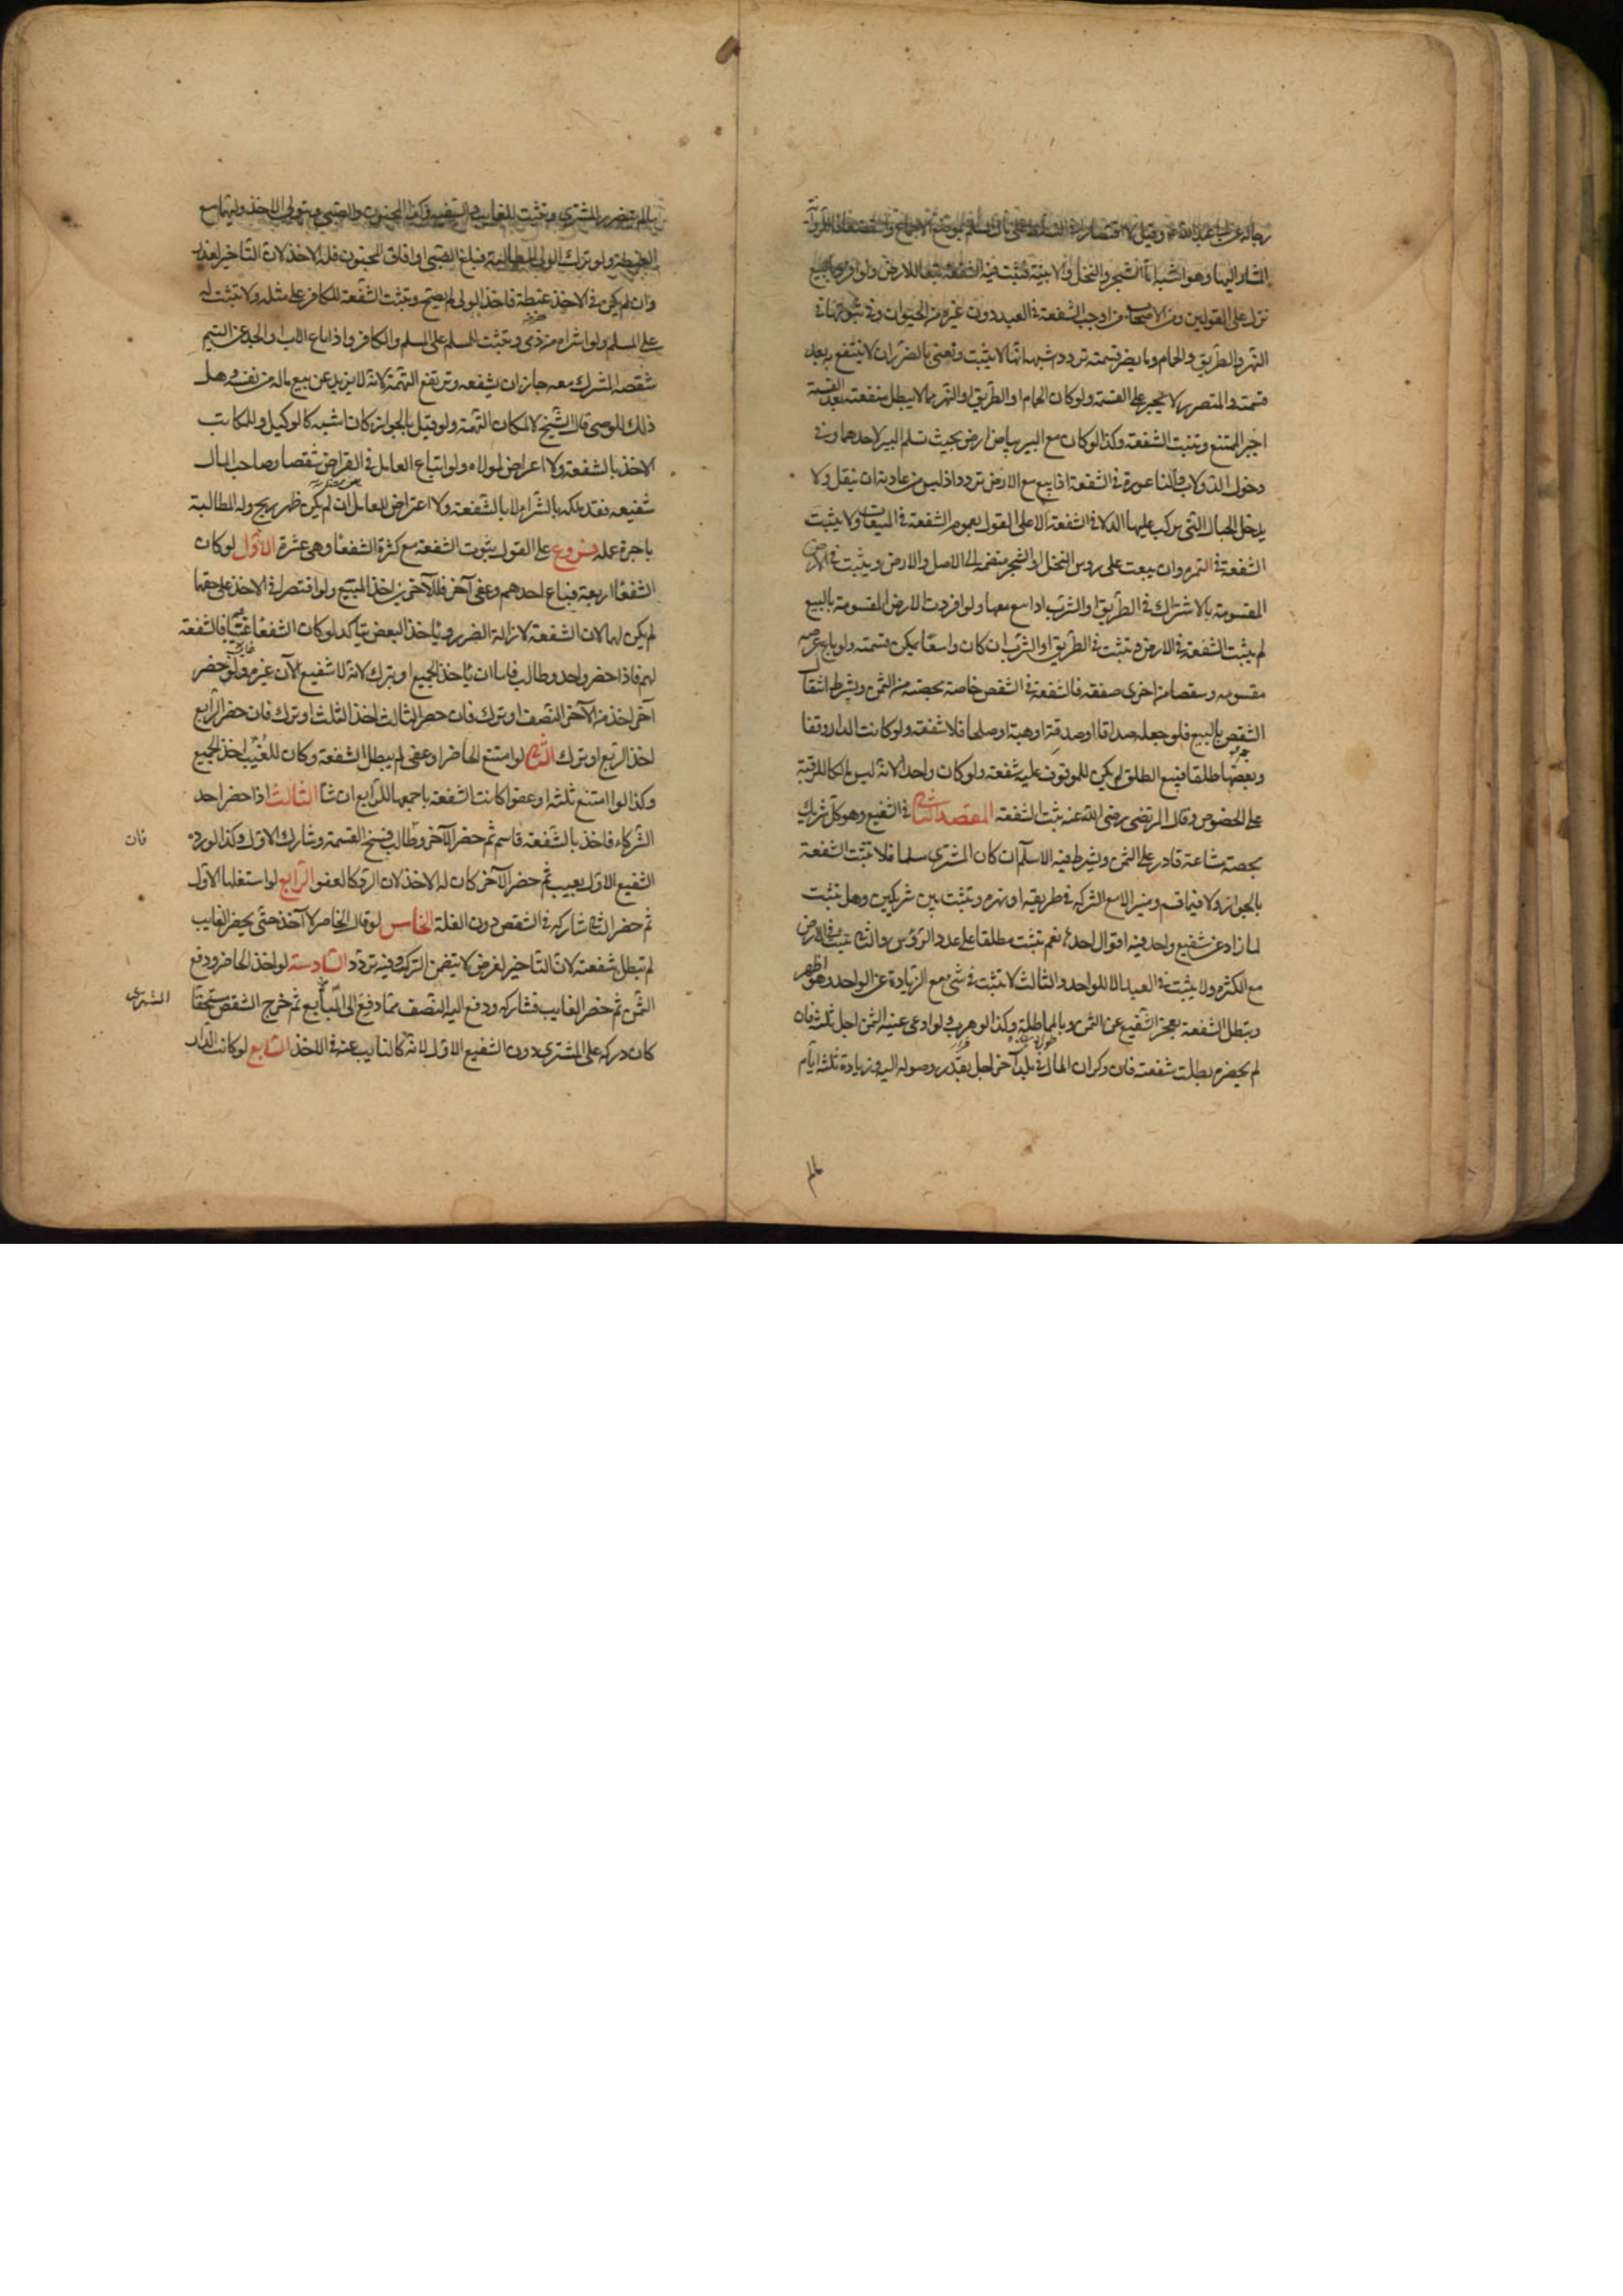 رجاله عن ابي عبد الله ع وقيل لا اقتصارا في التسلط على مال المسلم بموضع الاجماع واستضعافا للرواية
المشار اليها وهو اشبه اما الشجر والنخل والابنية فتثبت فيه الشفعة تبعا للارض ولو افرد بالبيع
نزل على القولين ومن الاصحاب من اوجب الشفعة في العبد دون غيره من الحيوان وفي ثبوتها في
النهر والطريق والحمام وما يضر قسمته تردد اشبهه انها لا يثبت ونعنى بالضرر ان لا ينتفع به بعد
قسمته والمتضرر لا يجبر على القسمة ولو كان الحمام او الطريق او النهر مما لا يبطل منفعته بعد القسمة
اجبر الممتنع وتثبت الشفعة وكذا لو كان مع البير بياض ارض بحيث تسلم البير لاحدهما وفي
دخول الدولاب والناعورة في الشفعة اذا بيع مع الارض تردد اذ ليس من عادته ان ينقل ولا
يدخل الحبال التي يركب عليها الدلا في الشفعة الا على القول بعموم الشفعة في المبيعات ولا يثبت
الشفعة في الثمره وان بيعت على روس النخل او الشجر منضمة الى الاصل والارض ويثبت في الارض
المقسومة بالاشتراك في الطريق او الشرب اذا بيع معها ولو افردت الارض المقسومة بالبيع
لم يثبت الشفعة في الارض وتثبت في الطريق او الشرب ان كان واسعا يمكن قسمته ولو باع عرصه
مقسومه وشقصا من اخرى صفقه فالشفعة في الشقص خاصة بحصته من الثمن ويشرط انتقال
الشقص بالبيع فلو جعله صداقا او صدقة او هبة او صلحا فلا شفعة ولو كانت الدار وقفا
وبعضها طلقا فبيع الطلق لم يكن للموقوف عليه شفعه ولو كان واحدا لانه ليس مالكا للرقبة
على الخصوص وقال المرتضى رضى الله عنه يثبت الشفعة المقصد الثاني في الشفيع وهو كل شريك
بحصة مشاعة قادر على الثمن ويشرط فيه الاسلام ان كان المشترى مسلما فلا تثبت الشفعة
بالجوار ولا فيما قسم وميز الا مع الشركه في طريقه او نهره وتثبت بين شريكين وهل تثبت
لما زاد عن شفيع واحد فيه اقوال احدها نعم تثبت مطلقا على عدد الرؤس والثاني تثبت في الارض
مع الكثره ولا يثبت في العبد الا للواحد والثالث لا تثبت في شئ مع الزيادة عن الواحد وهو اظهر
ويبطل الشفعة بعجز الشفيع عن الثمن وبالمماطلة وكذا لو هرب ولو ادعى غيبة الثمن اجل ثلثه فان
لم يحضره بطلت شفعته فان ذكر ان المال في بلد آخر اجل بقدر وصوله اليه وزيادة ثلثه ايام
ما لم يتضرر المشترى وتثبت للغايب والسفيه وكذا المجنون والصبى ويتولى الاخذ وليهما مع
الغبطة ولو ترك الولى المطالبة فبلغ الصبى او افاق المجنون فله الاخذ لان التاخير لعذر
وان لم يكن في الاخذ غبطة فاخذ الولى لم يصح وتثبت الشفعة للكافر على مثله ولا تثبت له
على المسلم ولو اشتراه من ذمى وتثبت للمسلم على المسلم والكافر واذا باع الاب او الجد عن اليتيم
شقصه المشترك معه جاز ان يشفعه وترتفع التهمة لانه لا يزيد عن بيع ماله من نفسه وهل
ذلك للوصى قال الشيخ لا لمكان التهمة ولو قيل بالجواز كان اشبه كالوكيل وللمكاتب
الاخذ بالشفعة ولا اعتراض لمولاه ولو ابتاع العامل في القراض شقصا وصاحب المال
شفيعه فقد ملكه بالشراء لا بالشفعة ولا اعتراض للعامل ان لم يكن ظهر ربح وله المطالبة
باجرة عمله فروع على القول بثبوت الشفعة مع كثرة الشفعا وهي عشرة الاول لو كان
الشفعا اربعة فباع احدهم وعفى آخر فللآخرين اخذ المبيع ولو اقتصر في الاخذ على حقهما
لم يكن لهما لان الشفعة لازالة الضرر وباخذ البعض يتاكد لو كان الشفعا غيبا فالشفعة
لهم فاذا حضر واحد وطالب فاما ان ياخذ الجميع او يترك لانه لا شفيع الآن غيره ولو حضر
آخر اخذ من الآخر النصف او ترك فان حضر الثالث اخذ الثلث او ترك فان حضر الرابع
اخذ الربع او ترك الثاني لو امتنع الحاضر او عفى لم يبطل الشفعة وكان للغيب اخذ الجميع
وكذا لو امتنع ثلثه او عفوا كانت الشفعة باجمعها للرابع ان شا الثالث اذا حضر احد
الشركاء فاخذ بالشفعة قاسم ثم حضر الآخر وطالب فسخ القسمة وشارك الاول وكذا لو رده
الشفيع الاول بعيب ثم حضر الآخر كان له الاخذ لان الرد كالعفو الرابع لو استغلها الاول
ثم حضر الثاني شاركه في الشقص دون الغلة الخامس لو قال الحاضر لا آخذ حتى يحضر الغايب
لم تبطل شفعته لان التاخير لغرض لا يتضمن الترك وفيه تردد السادسة لو اخذ الحاضر ودفع
الثمن ثم حضر الغايب فشاركه ودفع اليه النصف مما دفع الى البايع ثم خرج الشقص مستحقا
كان دركه على المشترى دون الشفيع الاول لانه كالنايب عنه في الاخذ السابع لو كانت الدار
فان
المشترى